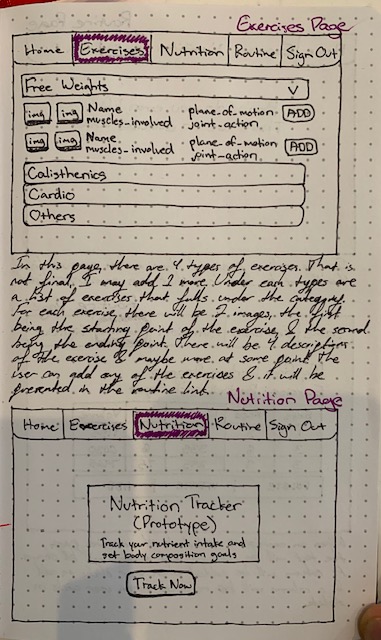 Exercises Page
Home Exercises Nutrition Routine Sign Out
Free Weights
img img Name plane_of_motion ADD
muscles_involved joint_action
img img Name plane_of_motion ADD
muscles_involved joint_action
Calisthenics
Cardio
Others
In this page, there are 4 types of exercises. That is
not final, I may add 1 more. Under each types are
a list of exercises that falls under the category.
For each exercise, there will be 2 images, the first
being the starting point of the exercise & the second
being the ending point. There will be 4 descriptions
of the exercise & maybe more at some point. The
user can add any of the exercises & it will be
presented in the routine link.
Nutrition Page
Home Exercises Nutrition Routine Sign Out
Nutrition Tracker
(Prototype)
Track your nutrient intake and
get body composition goals
Track Now